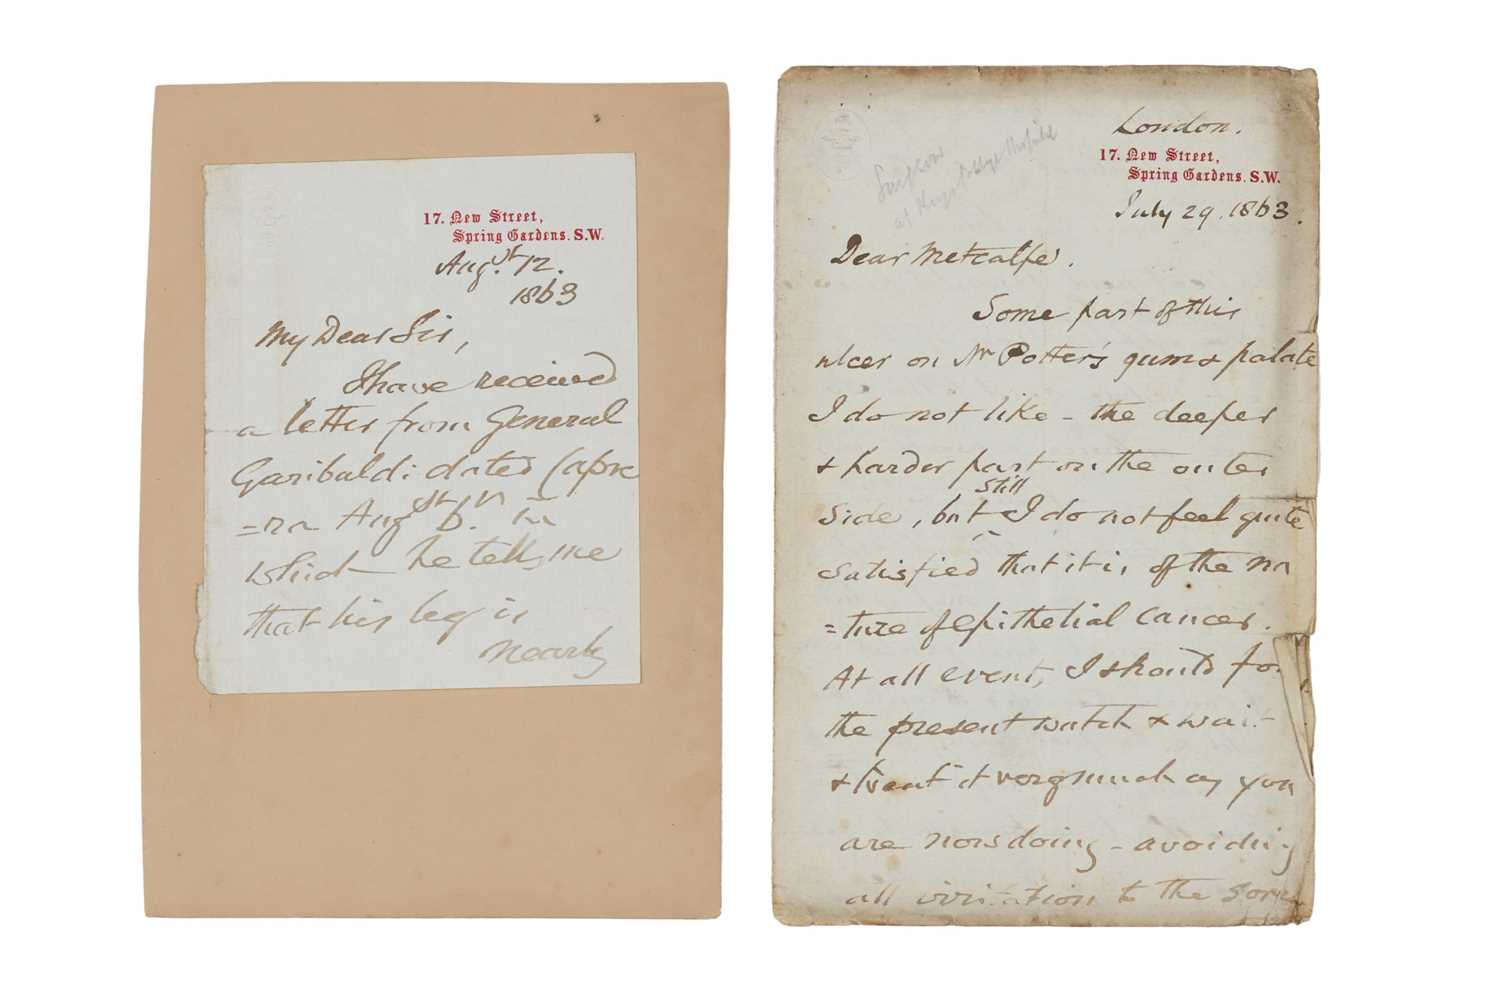 17. New Street,
Spring Gardens. S.W.
Augst. 12.
1863
My Dear Sir,
I have received
a letter from General
Garibaldi dated (apre
=ra Augst 6th. in
which he tells me
that his leg is
nearly
Surgeon
at Kings College Hospital
London.
17. New Street,
Spring Gardens. S.W.
July 29. 1863.
Dear Metcalfe.
Some part of this
ulcer on Mr Potter's gum & palate
I do not like - the deeper
& harder part on the outer
still
side, but I do not feel quite
satisfied that it is of the na
=ture of epithelial cancer.
At all events, I should for
the present watch & wait
& treat it very much as you
are now doing - avoiding
all irritation to the sore